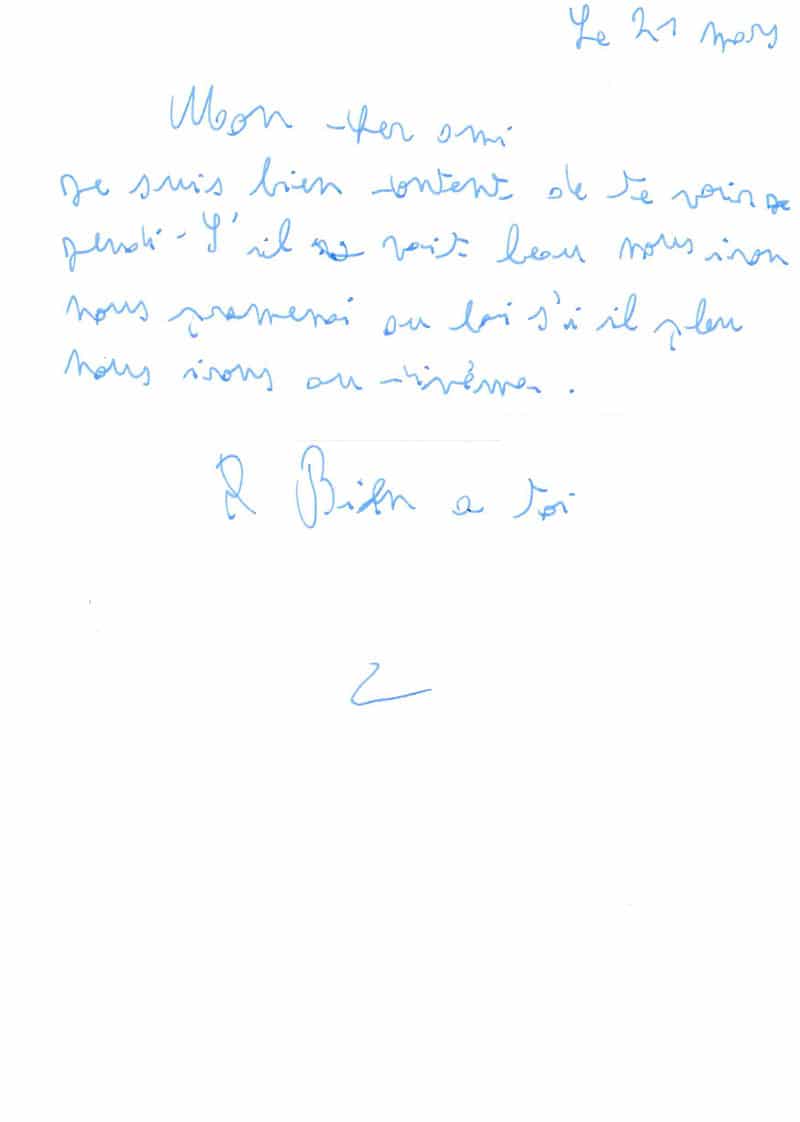 Le 21 mars
Mon cher ami
Je suis bien content de te voir Je
jeudi - S'il vait beau nous iron
nous promenai au boi s'i il pleu
nous irons au cinéma.
R Bien a toi